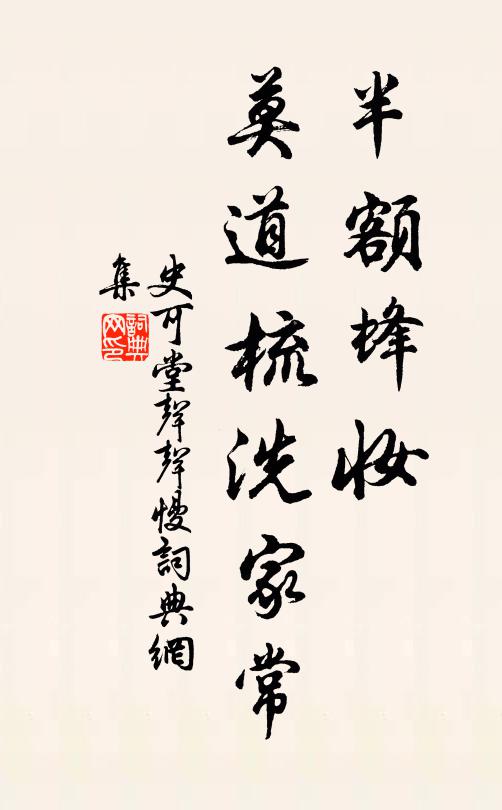 半額蜂妝
莫道梳洗家常
史可堂聲聲慢詞典網
集
詞典网印